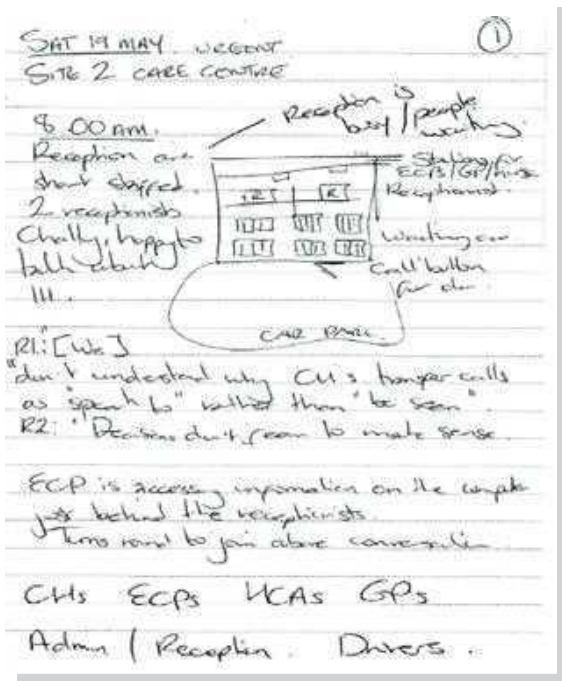 ①
SAT 19 MAY. URGENT
SITE 2 CARE CENTRE
Reception is
busy / people
waiting.
8.00 am.
Reception are
short staffed.
2 receptionists
Chatty, happy to
talk about
111.
Station for
ECPs/GP/nurse
Receptionist.
R R
Waiting area
Call button
for door.
CAR PARK.
R1: [We]
"don't understand why CH's transfer calls
as "speak to" rather than "be seen".
R2: "Decisions don't seem to make sense.
ECP is accessing information on the computer
just behind the receptionists.
Turns round to join above conversation.
CHs ECPs HCAs GPs
Admin / Reception. Drivers.